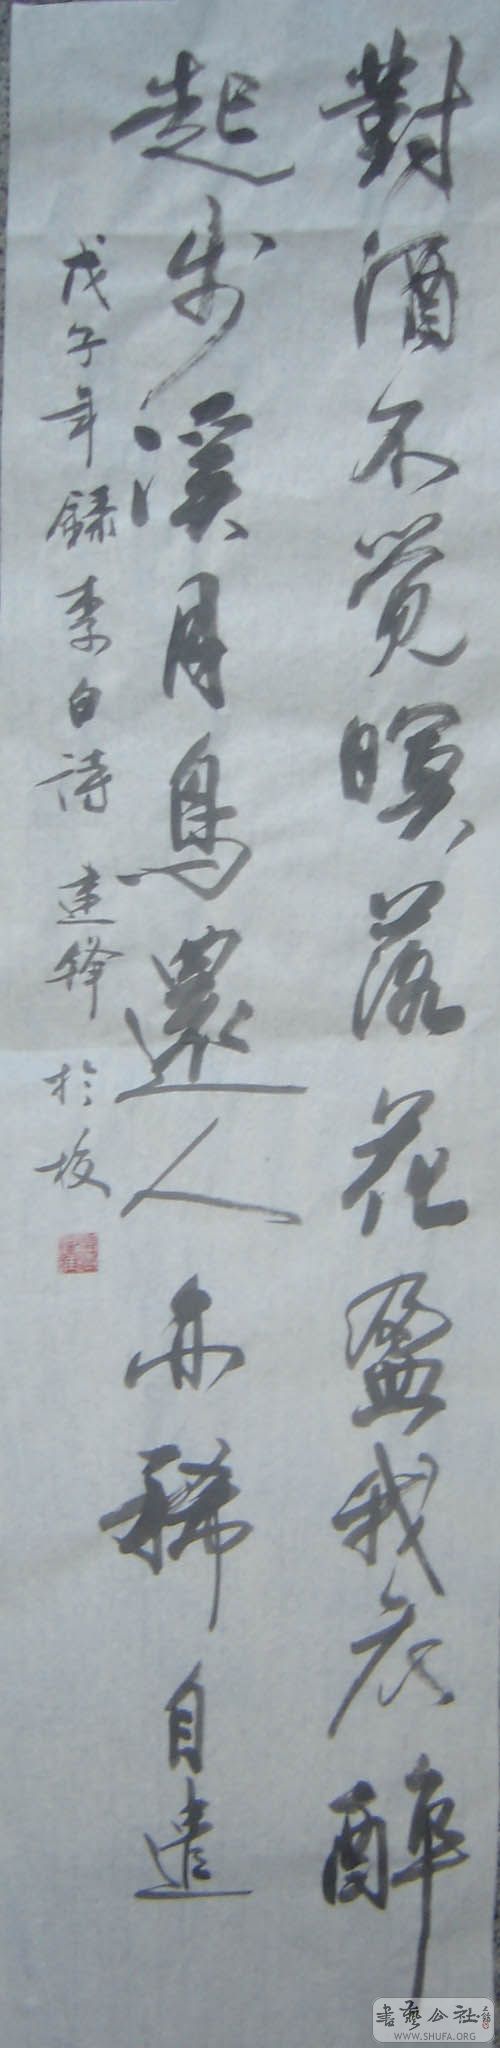 對酒不覺暝落花盈我衣醉
起步溪月鳥還人亦稀自遣
戊子年錄李白詩 建鋒 於
書藝公社
WWW.SHUFA.ORG